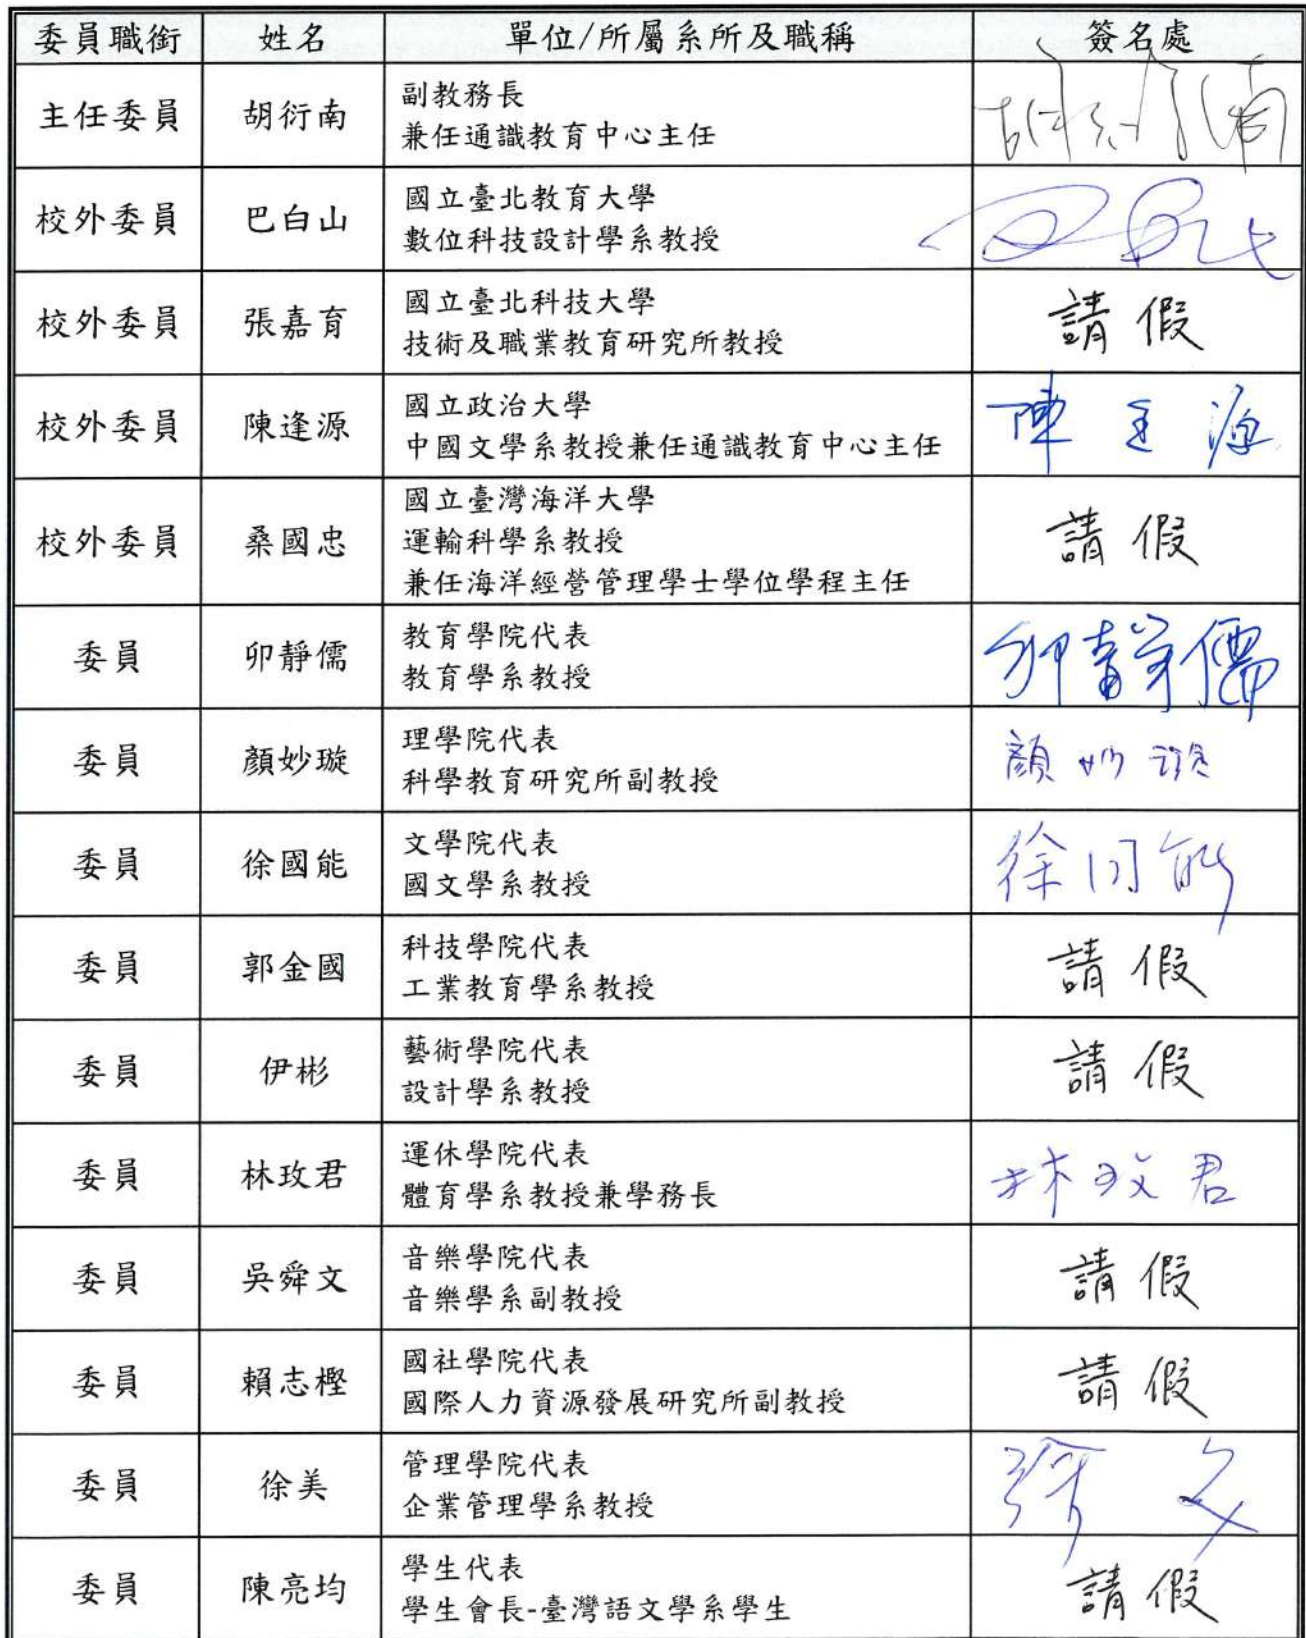 委員職銜 姓名 單位/所屬系所及職稱 簽名處
主任委員 胡衍南 副教務長
兼任通識教育中心主任
胡衍南
校外委員 巴白山 國立臺北教育大學
數位科技設計學系教授
校外委員 張嘉育 國立臺北科技大學
技術及職業教育研究所教授
請假
校外委員 陳逢源 國立政治大學
中國文學系教授兼任通識教育中心主任
陳逢源
校外委員 桑國忠 國立臺灣海洋大學
運輸科學系教授
兼任海洋經營管理學士學位學程主任
請假
委員 卯靜儒 教育學院代表
教育學系教授
卯靜儒
委員 顏妙璇 理學院代表
科學教育研究所副教授
顏妙璇
委員 徐國能 文學院代表
國文學系教授
徐國能
委員 郭金國 科技學院代表
工業教育學系教授
請假
委員 伊彬 藝術學院代表
設計學系教授
請假
委員 林玫君 運休學院代表
體育學系教授兼學務長
林玫君
委員 吳舜文 音樂學院代表
音樂學系副教授
請假
委員 賴志樫 國社學院代表
國際人力資源發展研究所副教授
請假
委員 徐美 管理學院代表
企業管理學系教授
委員 陳亮均 學生代表
學生會長-臺灣語文學系學生
請假